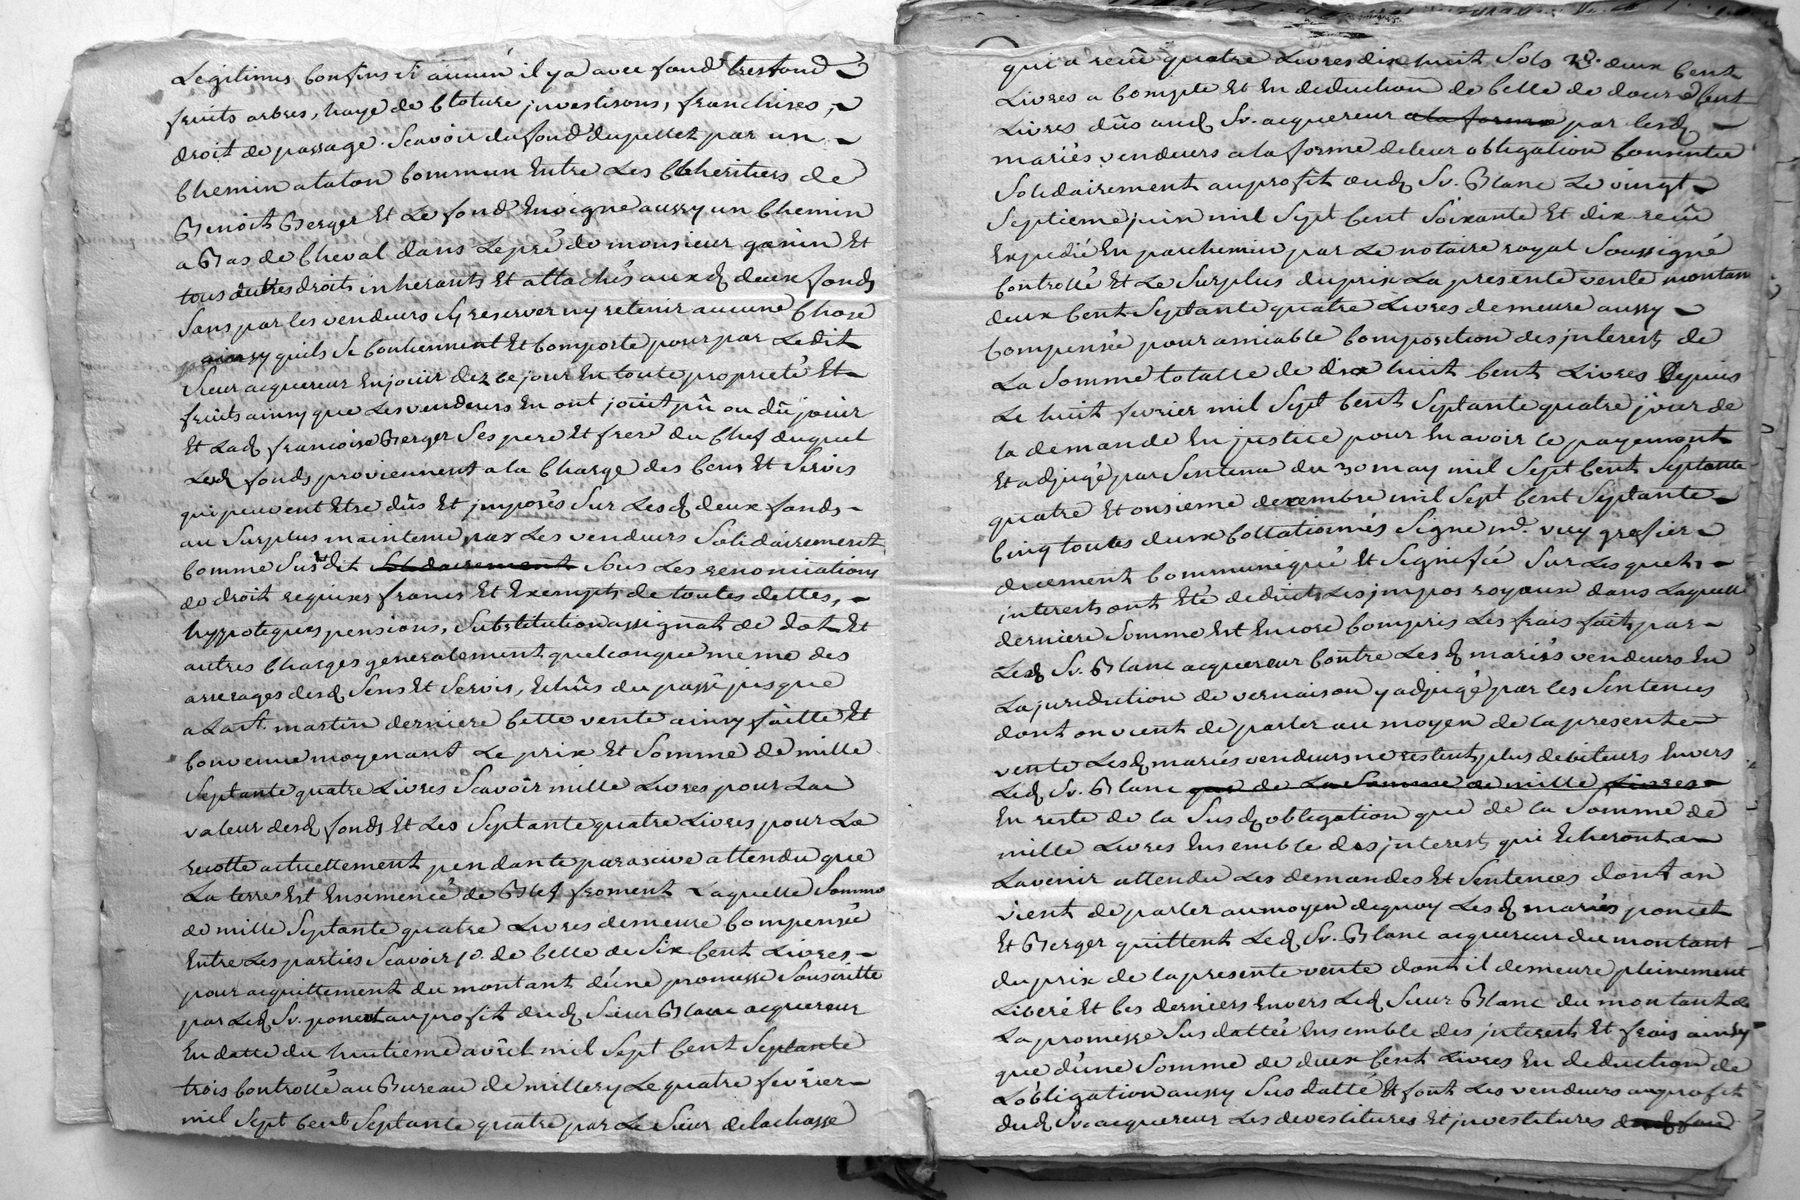 Legitimes confins si aucun il y a avec fond tresfond
fruits arbres, haye de cloture, jnvestisons, franchises,
droit de passage. Scavoir du fond du pellet par un
chemin a talon commun Entre Les Coheritiers de
Benoit Berger Et Le fond Envigne aussy un chemin
a Bas de cheval dans Le pré de monsieur ganin Et
tous autres droits inherants Et attachés auxd deux fonds
Sans par les vendeurs sy reserver ny retenir aucune chose
ainsy quils Se contiennent Et comporte pour par Ledit
Sieur acquereur En jouir dez ce jour En toute propriete Et
fruits ainsy que Les vendeurs En ont jouit pû ou dû jouir
Et Lad francoise Berger Ses pere Et frere du chef duquel
Lesd fonds proviennent a la charge des cens Et Servis
qui peuvent Etre dûs Et jmposés Sur Lesd deux fonds
au Surplus maintenu par Les vendeurs Solidairement
comme Susdit Solidairement Sous Les renonciations
de droit requises francs Et Exempts de toutes dettes,
hyppoteques pensions, Substitution assignat de dot Et
autres charges generalement quelconque meme des
arrerages desd Sens Et Servis, Echûs du passé jusque
a La St. martin derniere cette vente ainsy faitte Et
convenue moyenant Le prix Et Somme de mille
Septante quatre Livres Scavoir mille Livres pour La
valeur desd fonds Et Les Septante quatre Livres pour La
recolte actuellement pendante attendu que
La terre Est Ensemencé de Bled froment Laquelle Somme
de mille Septante quatre Livres demeure compensée
Entre Les parties Scavoir 1o. de celle de Six cent Livres
pour acquittement du montant d'une promesse Souscritte
par Led Sr. poncet au profit dud Sieur Blanc acquereur
En datte du huitieme avril mil Sept cent Septante
trois controllé au Bureau de millery Le quatre fevrier
mil Sept cent Septante quatre par Le Sieur delachasse
qui a reçû quatre Livres dix huit Sols 2o. deux cent
Livres a compte Et En deduction de celle de douze cent
Livres dûs aud Sr. acquereur a la forme par lesd
mariés vendeurs a la forme de leur obligation consentie
Solidairement au profit dud Sr. Blanc Le vingt
Septieme juin mil Sept cent Soixante Et dix reçû
Expedié En parchemin par Le notaire royal Soussigné
controllé Et Le Surplus du prix La presente vente montan
deux cent Septante quatre Livres demeure aussy
compensée pour amiable composition des jnterest de
La Somme totalle de dix huit cent Livres Depuis
Le huit fevrier mil Sept cent Septante quatre jour de
la demande En justice pour En avoir le payement
Et adjugé par Sentence du 30 may mil Sept cent Septante
quatre Et onsieme decembre mil Sept cent Septante
cinq toutes deux collationnés Signe md. very grefier
duement communiqué Et Signifié Sur Lesquels
interests ont Eté deduits Les jmpos royaux dans Laquelle
derniere Somme Est Encore compris Les frais faits par
Led Sr. Blanc acquereur contre Lesd mariés vendeurs En
La juridiction de vernaison y adjugé par les Sentences
dont on vient de parler au moyen de la presente
vente Lesd mariés vendeurs ne restent plus debiteurs Envers
Led Sr. Blanc que de La Somme de mille Livres
En reste de la Susd obligation que de la Somme de
mille Livres Ensemble des jnterest qui Echeront a
Lavenir attendu Les demandes Et Sentences dont on
vient de parler au moyen dequoy Lesd mariés poncet
Et Berger quittent Led Sr. Blanc acquereur du montant
du prix de la presente vente dont il demeure pleinement
Liberé Et les derniers Envers Led Sieur Blanc du montant de
La promesse Sus dattée Ensemble des jnterest Et frais ainsy
que d'une Somme de deux cent Livres En deduction de
L'obligation aussy Sus datté Et font Les vendeurs au profit
dud Sr. acquereur Les devestitures Et jnvestitures